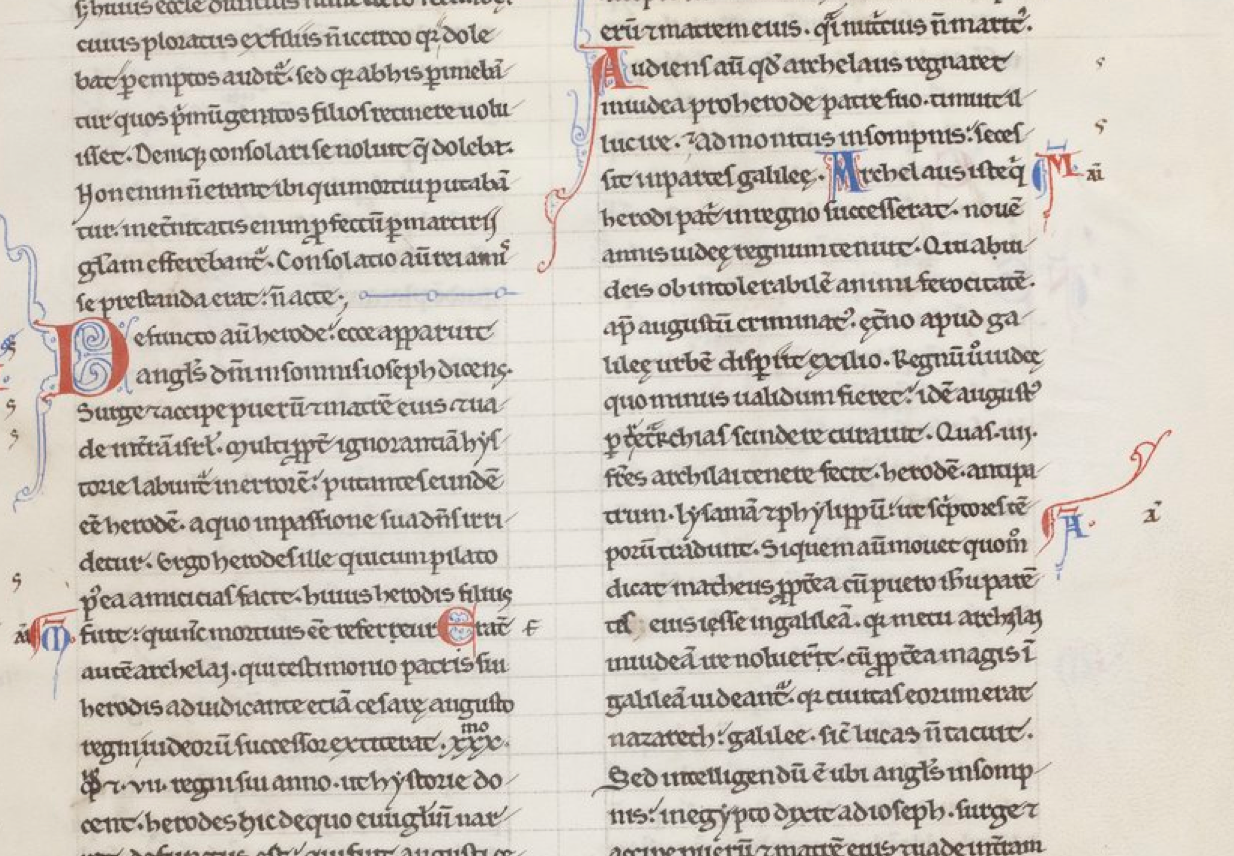 cuius ploratus ex filiis n̄ iccirco qr dole
bat pemptos audir̄. sed qr ab his ꝑimebā
tur quos p̄mū genitos filios retinere uolu
isset. Deniq; consolari se noluit q̄ dolebat.
Non enim n̄ erant ibi qui mortui putabā
tur. in et̄nitatis enim ꝓfectū ꝑ martirij
gl̄am efferebant̄. Consolatio aū rei amis
se prestanda erat. n̄ aucte.
Defuncto aū herode. ecce apparuit
angl̄s dn̄i in somnis ioseph dicens.
Surge ⁊ accipe puerū ⁊ matrē eius ⁊ ua
de in t̄rā isrl̄. Multi ꝓpt̄ ignorantiā hys
torie labunt̄ in errorē. putantes eundē
eē herodē. a quo in passione sua dn̄s irri
detur. Ergo herodes ille qui cum pilato
p̄ea amicicias facit. huius herodis filius
fuit. qui nc̄ mortuus eē refertur. Erat
autē archelaj. qui testimonio patris sui
herodis adiudicante etiā cesare augusto
regni iudeorū successor extiterat. xxx.
mo
⁊ vii. regni sui anno. ut hystorie do
cent. herodes hic de quo euuḡliū nar
erū ⁊ matrem eius. qr̄ nutritius n̄ marit̄.
Audiens aū qd̄ archelaus regnaret
in iudea pro herode patre suo. timuit il
luc ire. ⁊ admonitus in sompnis. seces
sit in partes galilee. Archelaus iste q̄
herodi pat̄ in regno successerat. nouē
annis iudeę regnum tenuit. Qui a iu
deis ob intolerabilē animi ferocitatē.
ap̄ augustū criminat̄. et̄no apud ga
lileę urbē disꝑiit exilio. Regnū ū iudeę
quo minus ualidum fieret. idē august᷒
ꝑ tetrarchias scindere curauit. Quas .iiii.
fr̄es archilai tenere fecit. herodē. antipa
trum. lysamā ⁊ phylippū. ut sc̄ptores tē
porū tradunt. Si quem aū mouet quom̄
dicat matheus ꝓpt̄ea cū puero ih̄u parē
tes eius isse in galileā. qr metu archilaj
in iudeā ire noluer̄t. cū ꝓpt̄ea magis ī
galileā uideant̄. qr ciuitas eorum erat
nazareth. galilee. sic̄ lucas n̄ tacuit.
Sed intelligendū ē ubi angl̄s in somp
nis. in egypto dixit ad ioseph. surge ⁊
accipe puerū ⁊ matrē eius ⁊ uade in t̄ram